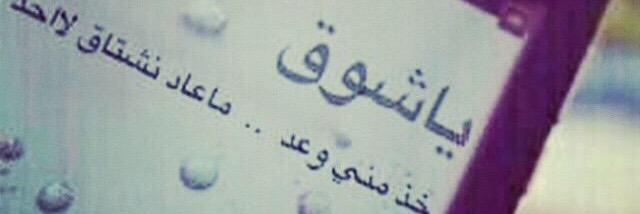 ياشوق
خذ مني وعد .. ماعاد نشتاق لااحد